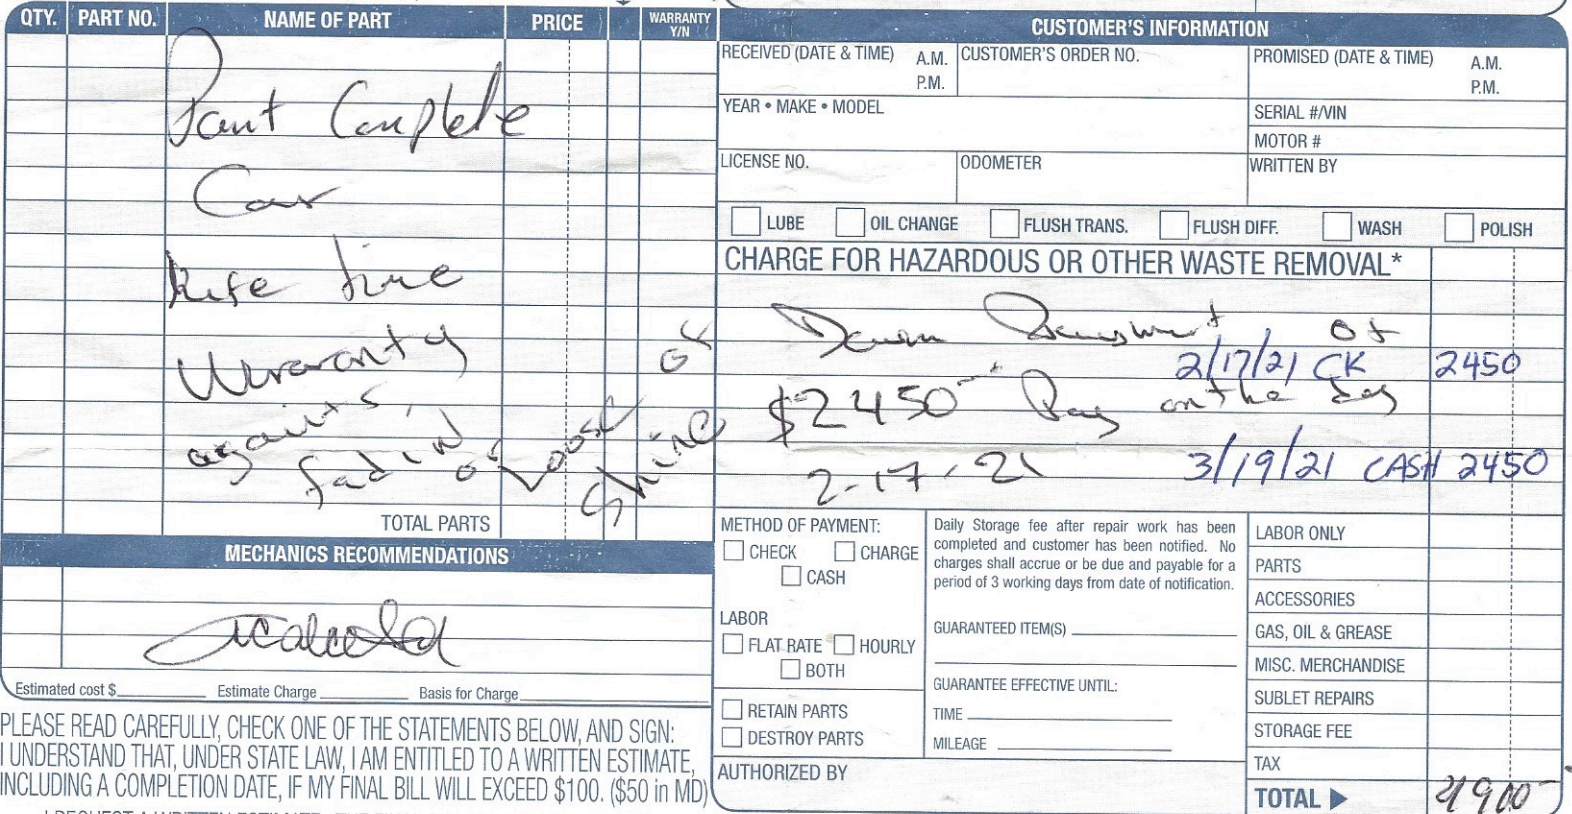 QTY. PART NO. NAME OF PART PRICE WARRANTY Y/N
Paint Complete
Car
Life time
Warranty
againts
fadin or Loose of
Shine
TOTAL PARTS
MECHANICS RECOMMENDATIONS
Estimated cost $ Estimate Charge Basis for Charge
PLEASE READ CAREFULLY, CHECK ONE OF THE STATEMENTS BELOW, AND SIGN:
I UNDERSTAND THAT, UNDER STATE LAW, I AM ENTITLED TO A WRITTEN ESTIMATE,
INCLUDING A COMPLETION DATE, IF MY FINAL BILL WILL EXCEED $100. ($50 in MD)
CUSTOMER'S INFORMATION
RECEIVED (DATE & TIME) A.M. P.M. CUSTOMER'S ORDER NO. PROMISED (DATE & TIME) A.M. P.M.
YEAR • MAKE • MODEL SERIAL #/VIN
MOTOR #
LICENSE NO. ODOMETER WRITTEN BY
LUBE OIL CHANGE FLUSH TRANS. FLUSH DIFF. WASH POLISH
CHARGE FOR HAZARDOUS OR OTHER WASTE REMOVAL*
Down Payment of
2/17/21 CK 2450
$2450 Pay on the day
2-17-21
3/19/21 CASH 2450
METHOD OF PAYMENT:
CHECK CHARGE
CASH
LABOR
FLAT RATE HOURLY
BOTH
RETAIN PARTS
DESTROY PARTS
AUTHORIZED BY
Daily Storage fee after repair work has been
completed and customer has been notified. No
charges shall accrue or be due and payable for a
period of 3 working days from date of notification.
GUARANTEED ITEM(S)
GUARANTEE EFFECTIVE UNTIL:
TIME
MILEAGE
LABOR ONLY
PARTS
ACCESSORIES
GAS, OIL & GREASE
MISC. MERCHANDISE
SUBLET REPAIRS
STORAGE FEE
TAX
TOTAL 4900